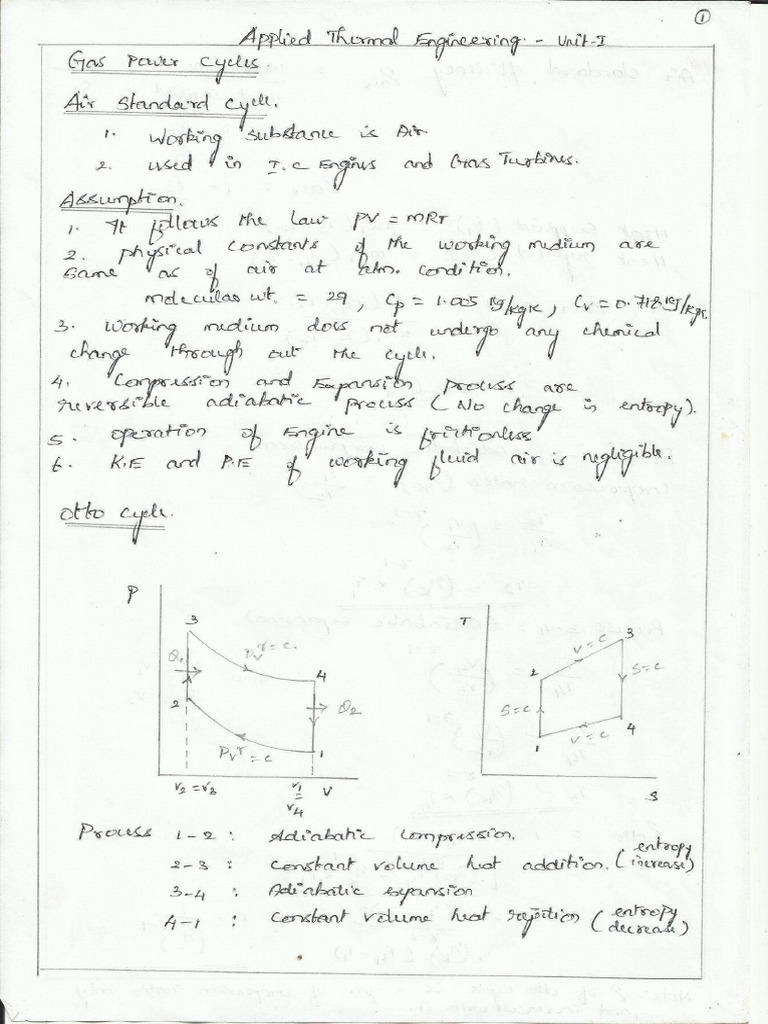 1
Applied Thermal Engineering - Unit-I
Gas Power Cycles
Air Standard Cycle.
1. Working Substance is Air
2. used in I.C Engines and Gas Turbines.
Assumption.
1. It follows the law PV = mRT
2. Physical Constants of the working medium are
same as of air at atm. condition.
molecular wt. = 29, Cp = 1.005 KJ/kgK, Cv = 0.718 KJ/kgK.
3. Working medium does not undergo any chemical
change through out the cycle.
4. Compression and Expansion process are
reversible adiabatic process (No change in entropy).
5. operation of Engine is frictionless
6. K.E and P.E of working fluid air is negligible.
Otto cycle.
P
3
Q1
PVʳ = C.
4
2
Q2
PVʳ = C
1
V2 = V3
V1 = V4
V
T
3
V = C
2
S = C
S = C
4
1
V = C
S
Process 1-2 : Adiabatic Compression.
2-3 : Constant volume heat addition. (entropy increase)
3-4 : Adiabatic expansion
4-1 : Constant volume heat rejection (entropy decrease)